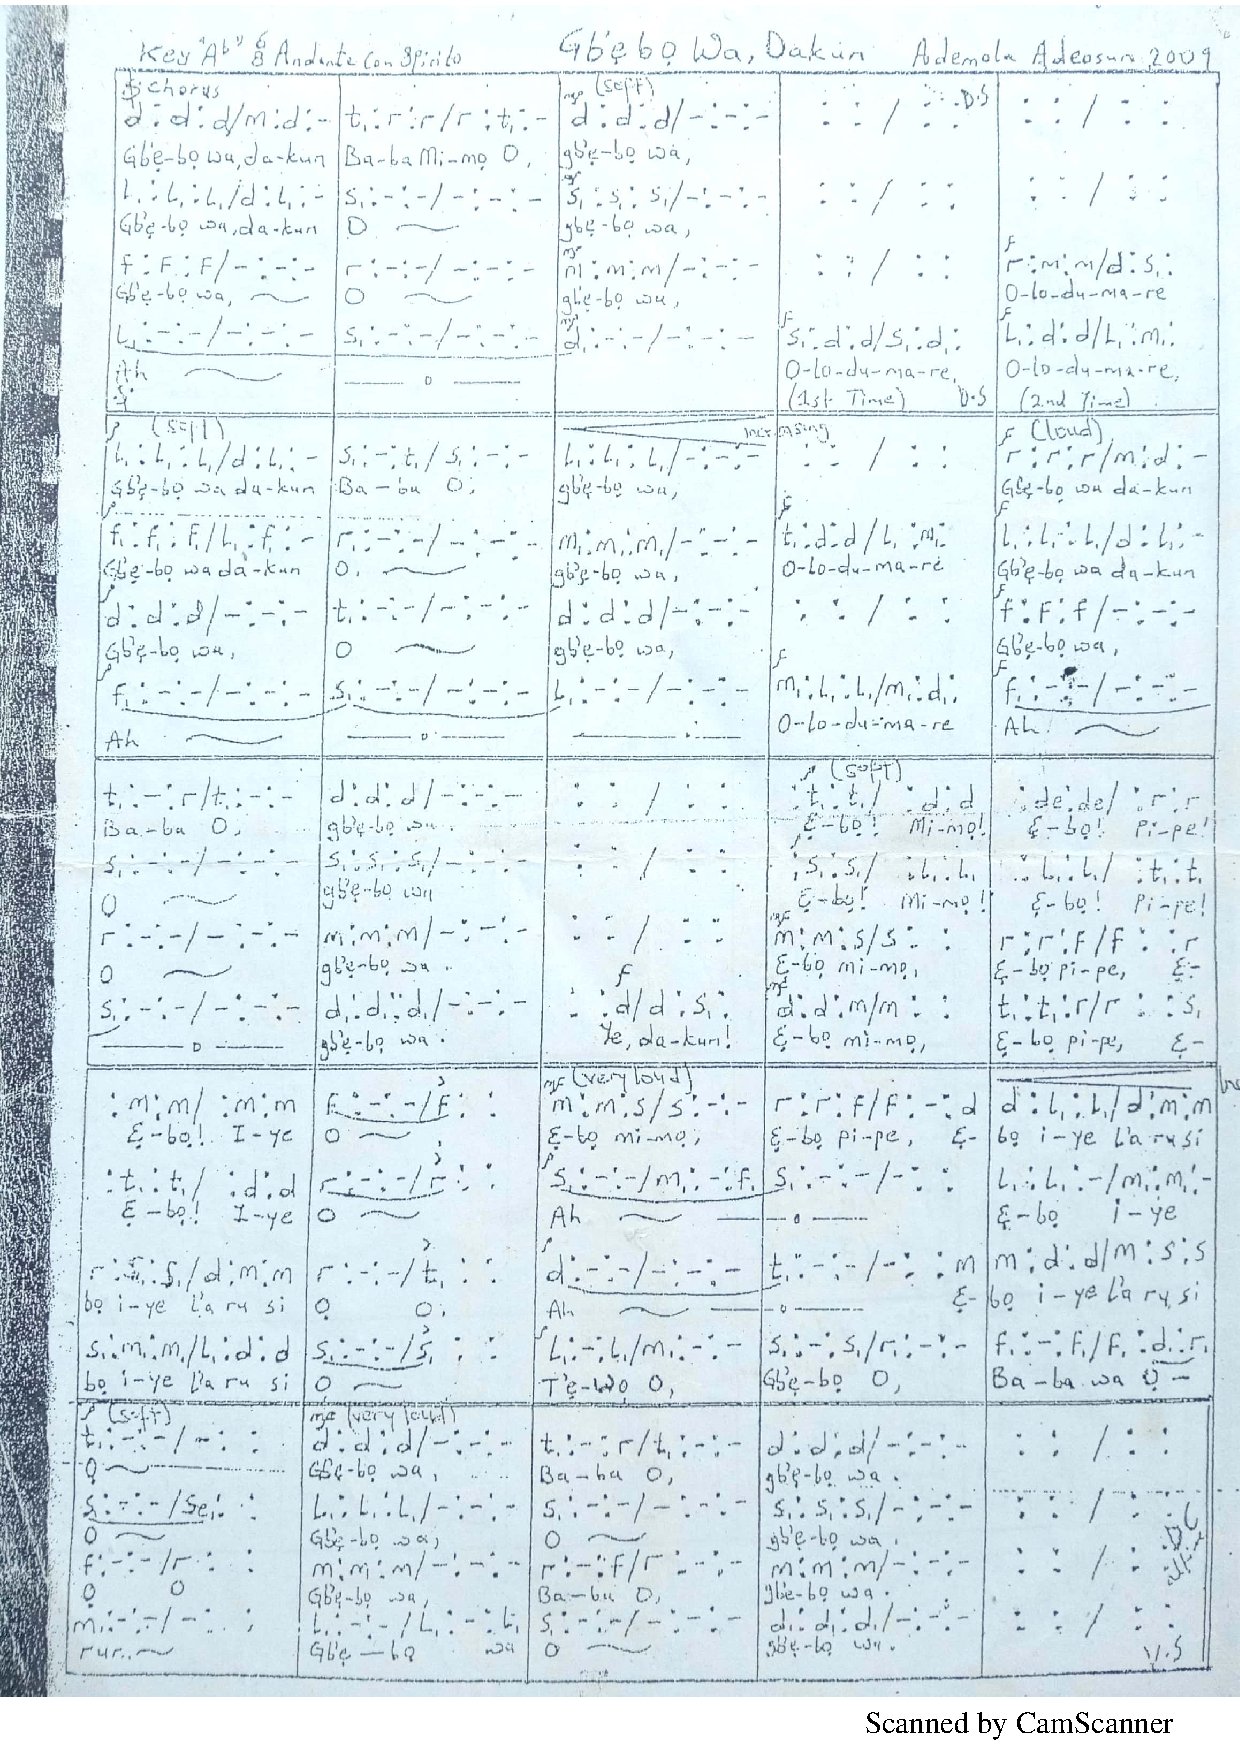 Key "Ab" 6/8 Andante Con Spirito Gb'ẹbọ Wa, Dakun Ademola Adeosun 2009
Chorus mp (soft)
d : d : d / m : d : - t₁ : r : r / r : t₁ : - d : d : d / - : - : - : : / : : D.S : : / : :
Gb'ẹ-bọ wa, da-kun Ba-ba Mi-mọ O, gb'ẹ-bọ wa,
L₁ : L₁ : L₁ / d : L₁ : - S₁ : - : - / - : - : - S₁ : S₁ : S₁ / - : - : - : : / : : : : / : :
Gb'ẹ-bọ wa, da-kun O gb'ẹ-bọ wa,
f : f : f / - : - : - r : - : - / - : - : - m : m : m / - : - : - : : / : : f r : m : m / d : S₁ :
Gb'ẹ-bọ wa, O gb'ẹ-bọ wa, O-lo-du-ma-re
L₁ : - : - / - : - : - S₁ : - : - / - : - : - d₁ : - : - / - : - : - f S₁ : d : d / S₁ : d₁ : f L₁ : d : d / L₁ : m₁ :
Ah O O-lo-du-ma-re, O-lo-du-ma-re,
(1st Time) D.S (2nd Time)
p (soft) increasing f (loud)
L₁ : L₁ : L₁ / d : L₁ : - S₁ : - : t₁ / S₁ : - : - L₁ : L₁ : L₁ / - : - : - : : / : : r : r : r / m : d : -
Gb'ẹ-bọ wa da-kun Ba-ba O, gb'ẹ-bọ wa, Gb'ẹ-bọ wa da-kun
f₁ : f₁ : f₁ / L₁ : f₁ : - r₁ : - : - / - : - : - m₁ : m₁ : m₁ / - : - : - t₁ : d : d / L₁ : m₁ : L₁ : L₁ : L₁ / d : L₁ : -
Gb'ẹ-bọ wa da-kun O, gb'ẹ-bọ wa, O-lo-du-ma-re Gb'ẹ-bọ wa da-kun
d : d : d / - : - : - t₁ : - : - / - : - : - d : d : d / - : - : - : : / : : f : f : f / - : - : -
Gb'ẹ-bọ wa, O gb'ẹ-bọ wa, Gb'ẹ-bọ wa,
f₁ : - : - / - : - : - S₁ : - : - / - : - : - L₁ : - : - / - : - : - m₁ : L₁ : L₁ / m₁ : d₁ : f₁ : - : - / - : - : -
Ah O O-lo-du-ma-re Ah
p (soft)
t₁ : - : r / t₁ : - : - d : d : d / - : - : - : : / : : : t₁ : t₁ / : d : d : de : de / : r : r
Ba-ba O, gb'ẹ-bọ wa. Ẹ-bọ! Mi-mọ! Ẹ-bọ! Pi-pe!
S₁ : - : - / - : - : - S₁ : S₁ : S₁ / - : - : - : : / : : : S₁ : S₁ / : L₁ : L₁ : L₁ : L₁ / : t₁ : t₁
O gb'ẹ-bọ wa Ẹ-bọ! Mi-mọ! Ẹ-bọ! Pi-pe!
r : - : - / - : - : - m : m : m / - : - : - : : / : : m : m : s / s : : r : r : f / f : : r
O gb'ẹ-bọ wa. Ẹ-bọ mi-mọ, Ẹ-bọ pi-pe, Ẹ-
S₁ : - : - / - : - : - d₁ : d₁ : d₁ / - : - : - : : d / d : S₁ : d : d : m / m : : t₁ : t₁ : r / r : : S₁
O gb'ẹ-bọ wa. Ye, da-kun! Ẹ-bọ mi-mọ, Ẹ-bọ pi-pe, Ẹ-
mf (very loud)
: m : m / : m : m f : - : - / f : : m : m : s / s : - : - r : r : f / f : - : d d : L₁ : L₁ / d : m : m
Ẹ-bọ! I-ye O Ẹ-bọ mi-mọ, Ẹ-bọ pi-pe, Ẹ- bọ i-ye l'a ru si
: t₁ : t₁ / : d : d r : - : - / r : : S₁ : - : - / m₁ : - : f₁ S₁ : - : - / - : : L₁ : L₁ : - / m₁ : m₁ : -
Ẹ-bọ! I-ye O Ah O Ẹ-bọ i-ye
r : f : f / d : m : m r : - : - / t₁ : : d : - : - / - : - : - t₁ : - : - / - : : m m : d : d / m : s : s
bọ i-ye l'a ru si O O, Ah O Ẹ- bọ i-ye l'a ru si
S₁ : m₁ : m₁ / L₁ : d : d S₁ : - : - / S₁ : : L₁ : - : L₁ / m₁ : - : - S₁ : - : S₁ / r₁ : - : - f₁ : - : f₁ / f₁ : d₁ : r₁
bọ i-ye l'a ru si O T'ẹ-wọ O, Gb'ẹ-bọ O, Ba-ba wa O -
p (soft) mf (very loud)
t₁ : - : - / - : : d : d : d / - : - : - t₁ : - : r / t₁ : - : - d : d : d / - : - : - : : / : :
O Gb'ẹ-bọ wa, Ba-ba O, gb'ẹ-bọ wa.
S₁ : - : - / Se₁ : : L₁ : L₁ : L₁ / - : - : - S₁ : - : - / - : - : - S₁ : S₁ : S₁ / - : - : - : : / : :
O Gb'ẹ-bọ wa, O gb'ẹ-bọ wa.
f : - : - / r : : m : m : m / - : - : - r : - : f / r : - : - m : m : m / - : - : - : : / : :
O O Gb'ẹ-bọ wa, Ba-ba O, gb'ẹ-bọ wa.
m₁ : - : - / - : : L₁ : - : - / L₁ : - : t₁ S₁ : - : - / - : - : - d₁ : d₁ : d₁ / - : - : - : : / : :
rur.. Gb'ẹ-bọ wa O gb'ẹ-bọ wa. V.S
Scanned by CamScanner